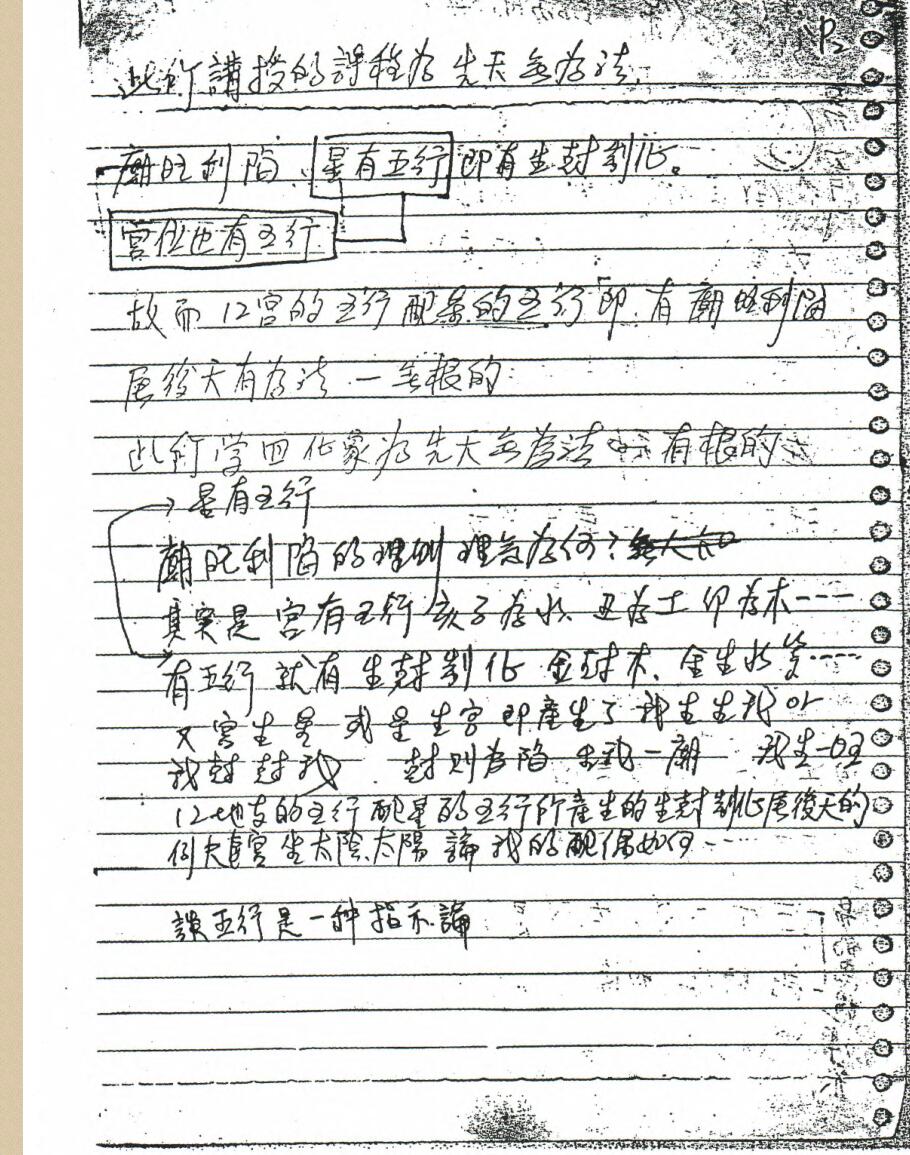 P2
此所講授的課程為先天無為法.
廟旺利陷、星有五行即有生尅制化。
宮位也有五行
故而12宮的五行配星的五行即有廟旺利陷
屬後天有為法 — 無根的
此所学四化象為先天無為法 有根的
→ 星有五行
廟旺利陷的理則理念為何?
其実是宮有五行 亥子為水 丑為土 卯為木----
有五行就有生尅制化 金尅木、金生水等----
又宮生星 或星生宮即產生了我生生我 or
我尅尅我. 尅則為陷 生我一廟 我生一旺
12地支的五行配星的五行所產生的生尅制化屬後天的
例夫妻宮坐太陰太陽論我的配偶如何--
談五行是一种指示論